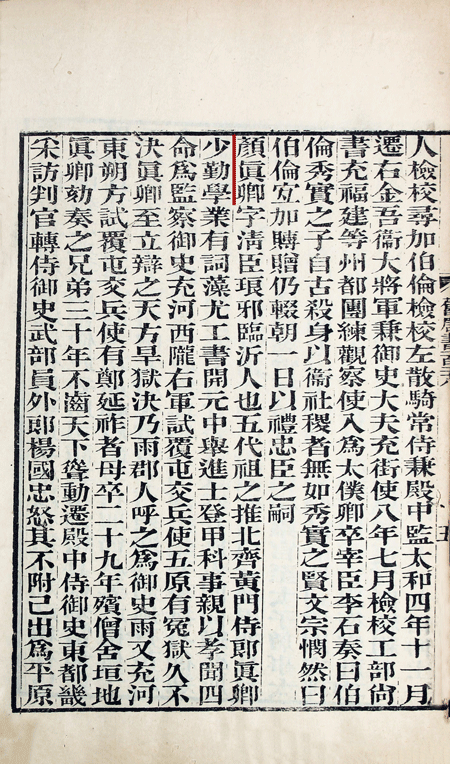 人檢校尋加伯倫檢校左散騎常侍兼殿中監太和四年十一月
遷右金吾衞大將軍兼御史大夫充街使八年七月檢校工部尚
書充福建等州都團練觀察使入爲太僕卿卒宰臣李石奏曰伯
倫秀實之子自古殺身以衞社稷者無如秀實之賢文宗憫然曰
伯倫宜加賻贈仍輟朝一日以禮忠臣之嗣
顔眞卿字淸臣琅邪臨沂人也五代祖之推北齊黃門侍郞眞卿
少勤學業有詞藻尤工書開元中舉進士登甲科事親以孝聞四
命爲監察御史充河西隴右軍試覆屯交兵使五原有冤獄久不
決眞卿至立辯之天方旱獄決乃雨郡人呼之爲御史雨又充河
東朔方試覆屯交兵使有鄭延祚者母卒二十九年殯僧舍垣地
眞卿劾奏之兄弟三十年不齒天下聳動遷殿中侍御史東都畿
采訪判官轉侍御史武部員外郞楊國忠怒其不附己出爲平原